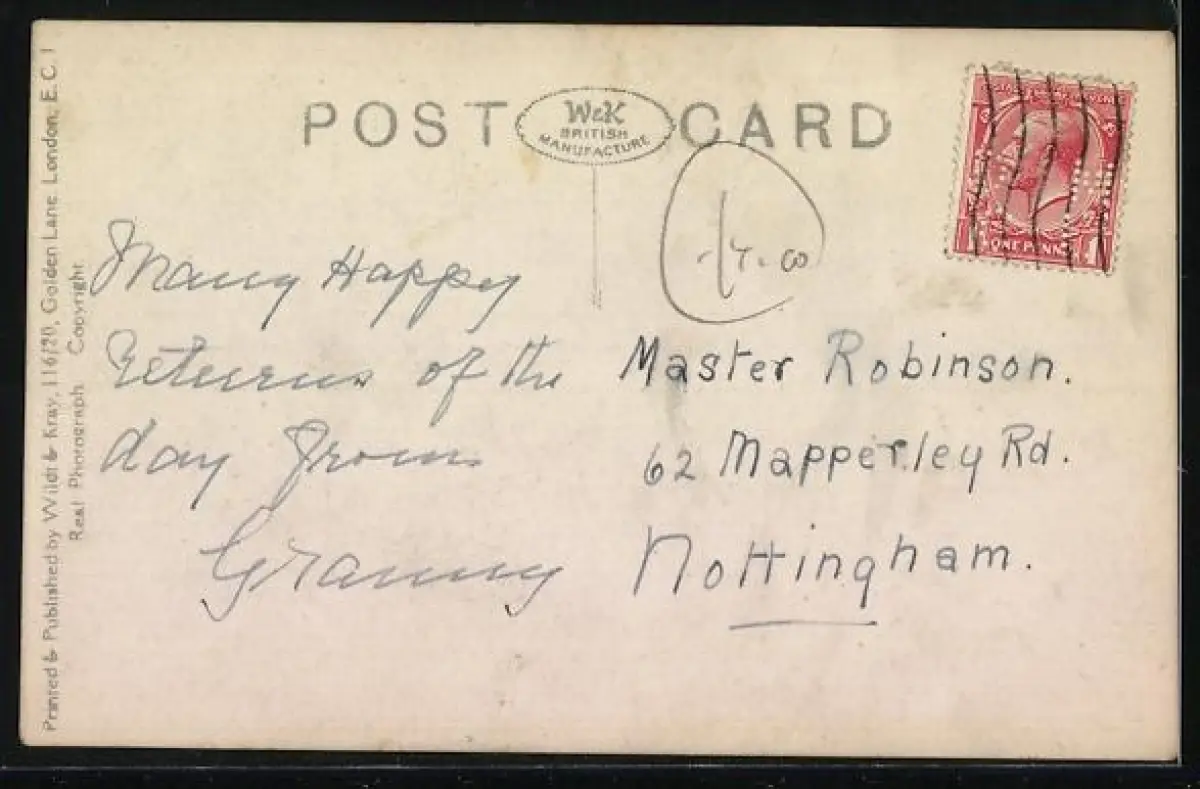 POST CARD
W&K
BRITISH
MANUFACTURE
ONE PENNY
Many Happy
Returns of the
day from
Granny
Master Robinson.
62 Mapperley Rd.
Nottingham.
Printed & Published by Wildt & Kray, 116/20, Golden Lane London, E.C.1
Real Photograph Copyright